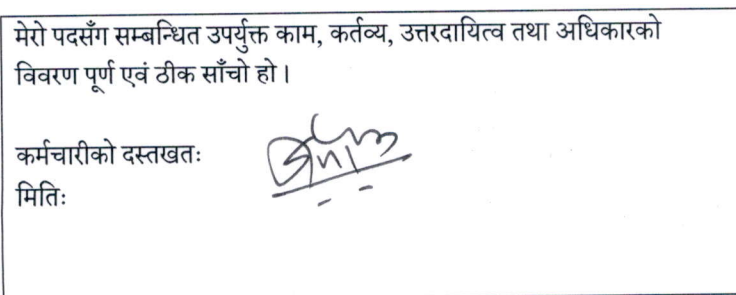 मेरो पदसँग सम्बन्धित उपर्युक्त काम, कर्तव्य, उत्तरदायित्व तथा अधिकारको
विवरण पूर्ण एवं ठीक साँचो हो ।
कर्मचारीको दस्तखतः
मितिः